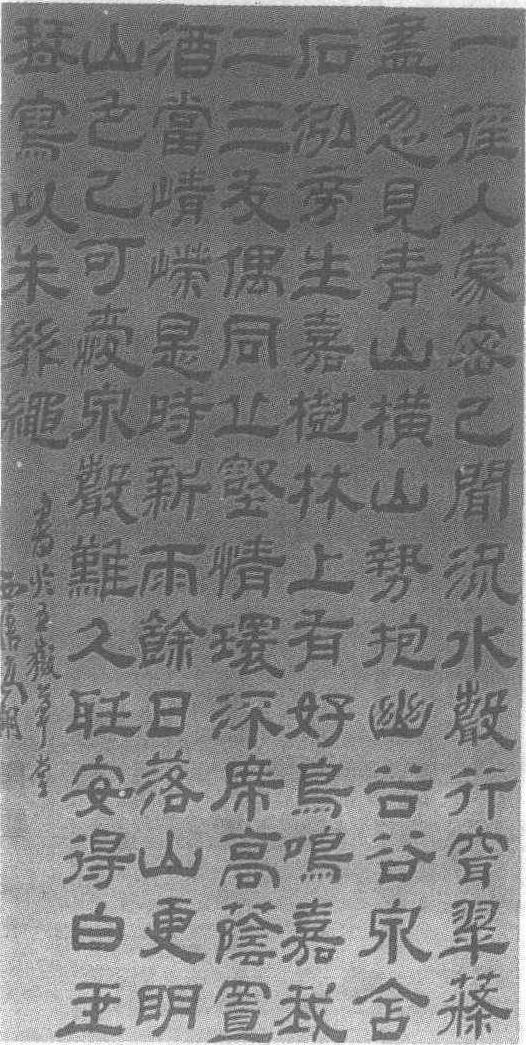 一徑入蒙密已聞流水聲行穿翠篠
盡忽見青山橫山勢抱幽谷谷泉含
石泓旁生嘉樹林上有好鳥鳴嘉我
二三友偶同丘壑情環流席高蔭置
酒當崢嶸是時新雨餘日落山更明
山色已可愛泉聲難久聽安得白玉
琴寫以朱絲繩
書於五嶽草堂
西唐高翔